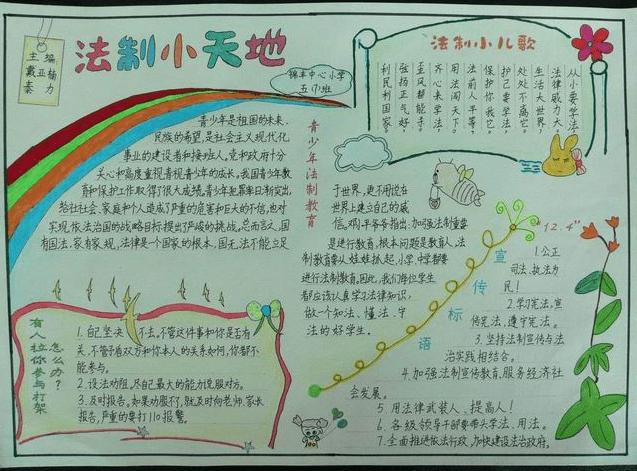 法制小天地
主编
戴亚杨
秦力
锦丰中心小学
五(1)班
法制小儿歌
从小要学法
法律威力大。
生活大世界，
处处不离它。
护己要学法，
保护你我它。
法前人平等，
用法闯天下。
齐心来学法，
歪风帮能手。
强扬正气好，
利民利国家。
青少年法制教育
青少年是祖国的未来，
民族的希望，是社会主义现代化
事业的建设者和接班人。党和政府十分
关心和高度重视青少年的成长，我国青少年教
育和保护工作取得了很大成绩。青少年犯罪率日渐突出，
给社社会、家庭和个人造成了严重的危害和巨大的不信，也对
实现依法治国的战略目标提出了严峻的挑战。总而言之，国
有国法，家有家规，法律是一个国家的根本，国无法不能立足
于世界，更不用说在
世界上建立自己的威
信。邓小平爷爷指出：加强法制重要
是进行教育，根本问题是教育人，法
制教育要从娃娃抓起，小学、中学都要
进行法制教育。因此，我们每位学生
都应该认真学习法律知识，
做一个知法、懂法、守
法的好学生。
有人拉你参与打架
怎么办？
1.自己坚决不去，不管这件事和你是否有
关，不管矛盾双方和你本人的关系如何，你都不
能参与。
2.设法劝阻，尽自己最大的能力说服对方。
3.及时报告。如果劝服不了，就及时向老师、家长
报告，严重的要打110报警。
"12.4"
宣传标语
1.公正
司法，执法为
民！
2.学习宪法，宣
传宪法，遵守宪法。
3.坚持法制宣传与法
治实践相结合。
4.加强法制宣传教育，服务经济社
会发展。
5.用法律武装人、提高人！
6.各级领导干部要带头学法、用法。
7.全面推进依法行政，加快建设法治政府。